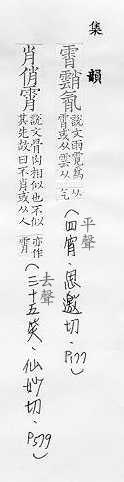 集韻
霄
說文雨霓為
霄或从雲
从气
平聲
(四宵．思邀切．P177)
肖俏霄
說文骨肉相似也不似
其先故曰不肖或从人
亦作
霄
去聲
(三十五笑．仙妙切．P579)